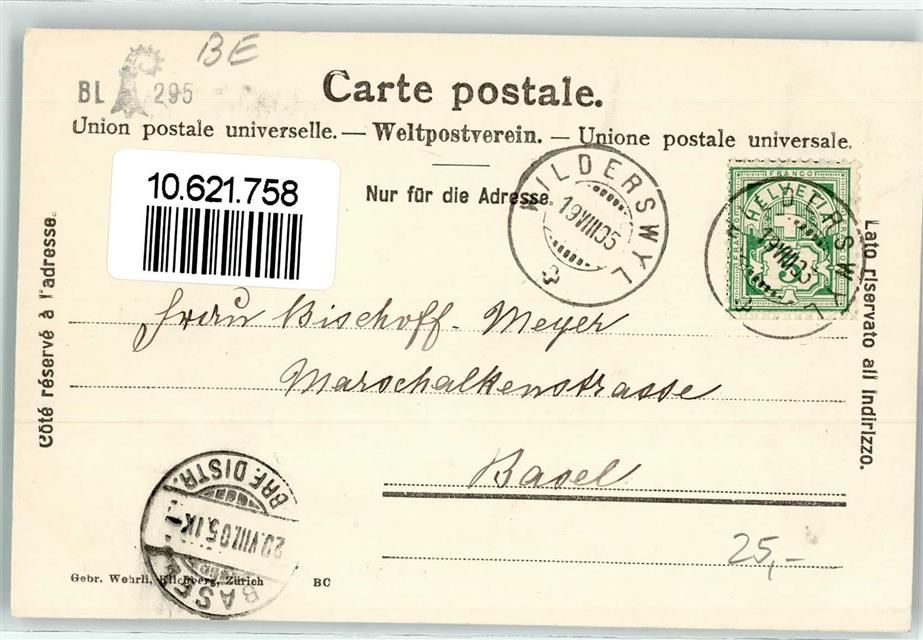 BE
BL 295
Carte postale.
Union postale universelle. — Weltpostverein. — Unione postale universale.
10.621.758
Nur für die Adresse.
WILDERSWYL
19 VIII 05
FRANCO
HELVETIA
WILDERSWYL
19 VIII 05
Côté réservé à l'adresse.
Lato riservato all' indirizzo.
Frau Bischoff-Meyer
Marschalkenstrasse
Basel
BRF. DISTR.
20.VIII.05.IX
BASEL
25,-
Gebr. Wehrli, Kilchberg, Zürich BC